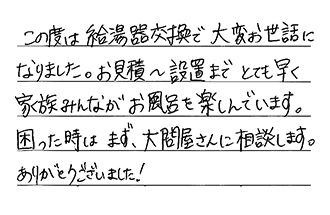 この度は給湯器交換で大変お世話に
なりました。お見積〜設置までとても早く
家族みんながお風呂を楽しんでいます。
困った時はまず、大問屋さんに相談します。
ありがとうございました!